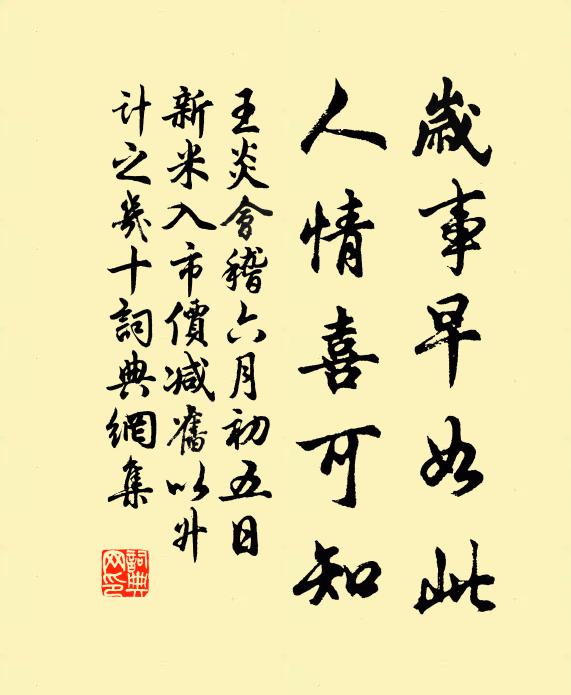 歲事早如此
人情喜可知
王炎會稽六月初五日
新米入市價減舊以升
計之幾十詞典網集
詞典
网印